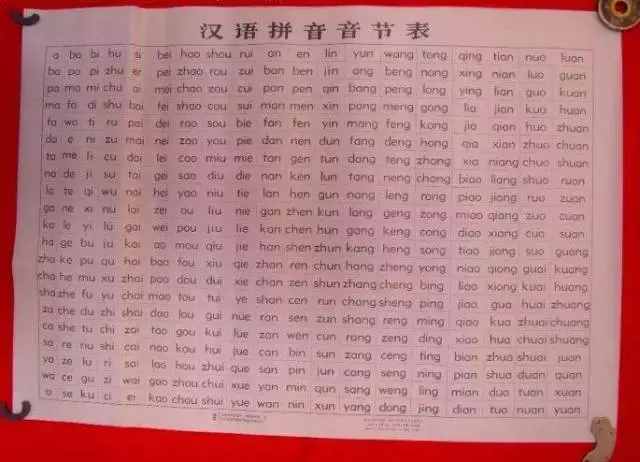 汉语拼音音节表
a bo bi hu si bei hao shou rui an en lin yun wang tong qing tian nuo luan
ba po pi zhu er pei zhao rou zui ban ben jin ang beng nong xing nian luo guan
pa mo mi chu ai mei chao zou cui pan pen qin bang peng long ying lian guo kuan
ma fo di shu bai fei shao cou sui man men xin pang meng gong lia jian kuo huan
fa wo ti ru pai dei rao sou bie fan fen yin mang feng kong jia qian huo zhuan
da e ni zu mai nei zao you pie dan nen dun fang deng hong qia xian zhuo chuan
ta me li cu dai lei cao miu mie tan gen tun dang teng zhong xia niang chuo shuan
na de ji su tai gei sao diu die nan ken lun tang neng chong biao liang shuo ruan
la te qi wu nai hei yao niu tie lan hen gun nang leng rong piao jiang ruo zuan
ga ne xi nü lai zei ou liu nie gan zhen kun lang geng zong miao qiang zuo cuan
ka le yi lü gai wei pou jiu lie kan chen hun gang keng cong diao xiang cuo suan
ha ge bu ju kai ao mou qiu jie han shen zhun kang heng song tiao jiong suo guang
zha ke pu qu hai bao fou xiu qie zhan ren chun hang zheng yong niao qiong guai kuang
cha he mu xu zhai pao dou dui xie chan zen shun zhang cheng bing liao xiong kuai huang
sha zhe fu yu chai mao tou tui ye shan cen run chang sheng ping jiao gua huai zhuang
za che du zhi shai dao lou gui nüe ran sen zun shang reng ming qiao kua zhuai chuang
ca she tu chi zai tao gou kui lüe zan wen cun rang zeng ding xiao hua chuai shuang
sa re nu shi cai nao kou hui jue can bin sun zang ceng ting bian zhua shuai juan
ya ze lu ri sai lao hou zhui que san pin jun cang seng ning pian shua duan quan
wa ce gu zi wai gao zhou chui xue yan min qun sang weng ling mian duo tuan xuan
o se ku ci ei kao chou shui yue wan nin xun yang dong jing dian tuo nuan yuan